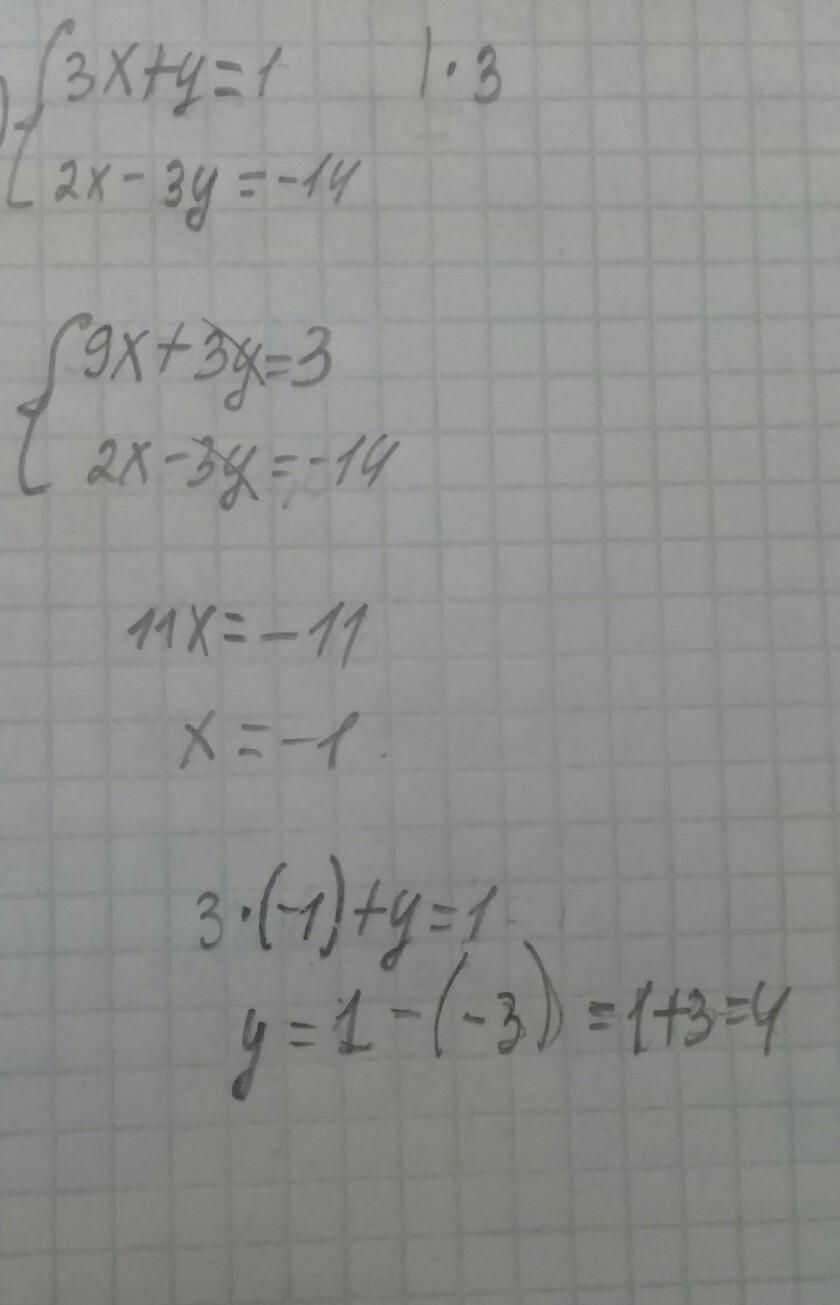 3x+y=1 |·3
2x-3y=-14
9x+3y=3
2x-3y=-14
11x=-11
x=-1
3·(-1)+y=1
y=1-(-3)=1+3=4